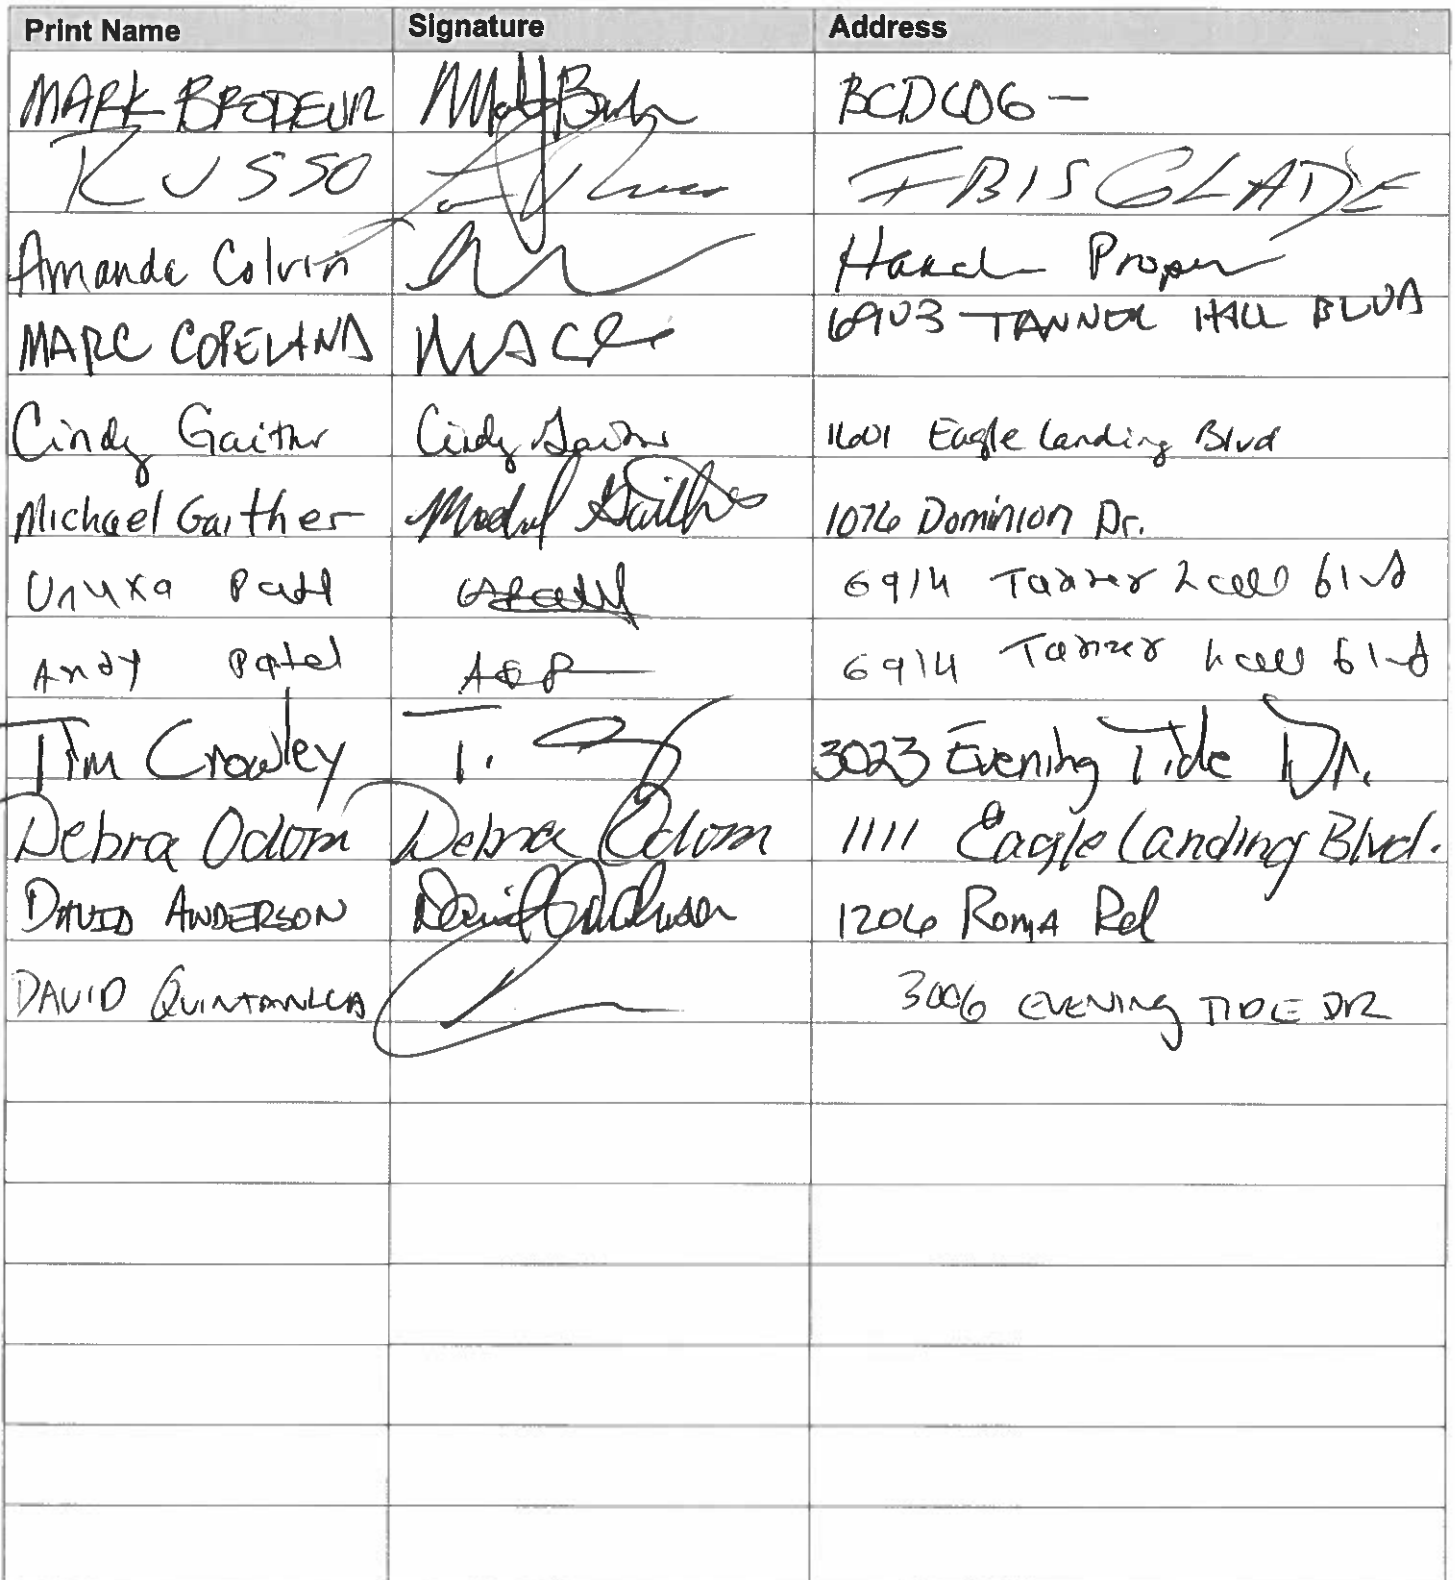 Print Name Signature Address
MARK BRODEUR BCDCOG -
RUSSO IBIS GLADE
Amanda Colvin
MARC COPELAND 6903 TANNER HALL BLVD
Cindy Gaither Cindy Gaither 1601 Eagle Landing Blvd
Michael Gaither Michael Gaither 1076 Dominion Dr.
Patel 6914 Tanner hall blvd
Andy Patel 6914 Tanner hall blvd
Tim Crowley T. 3023 Evening Tide Dr.
Debra Odom Debra Odom 1111 Eagle Landing Blvd.
DAVID ANDERSON David Anderson 1206 Roma Rd
DAVID QUINTANILLA 3006 EVENING TIDE DR